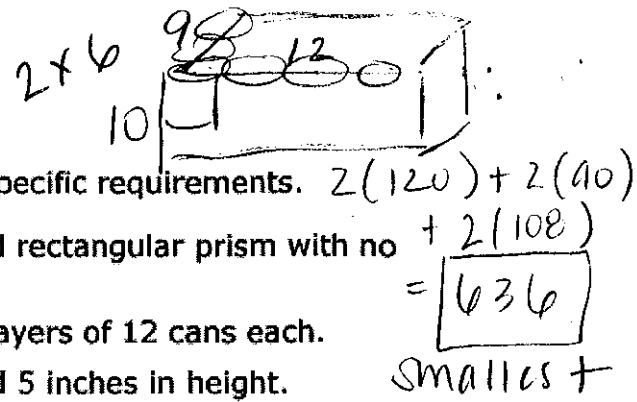 2 x 6
9
12
10
pecific requirements. 2(120) + 2(90)
l rectangular prism with no + 2(108)
= 636
ayers of 12 cans each.
l 5 inches in height. smallest